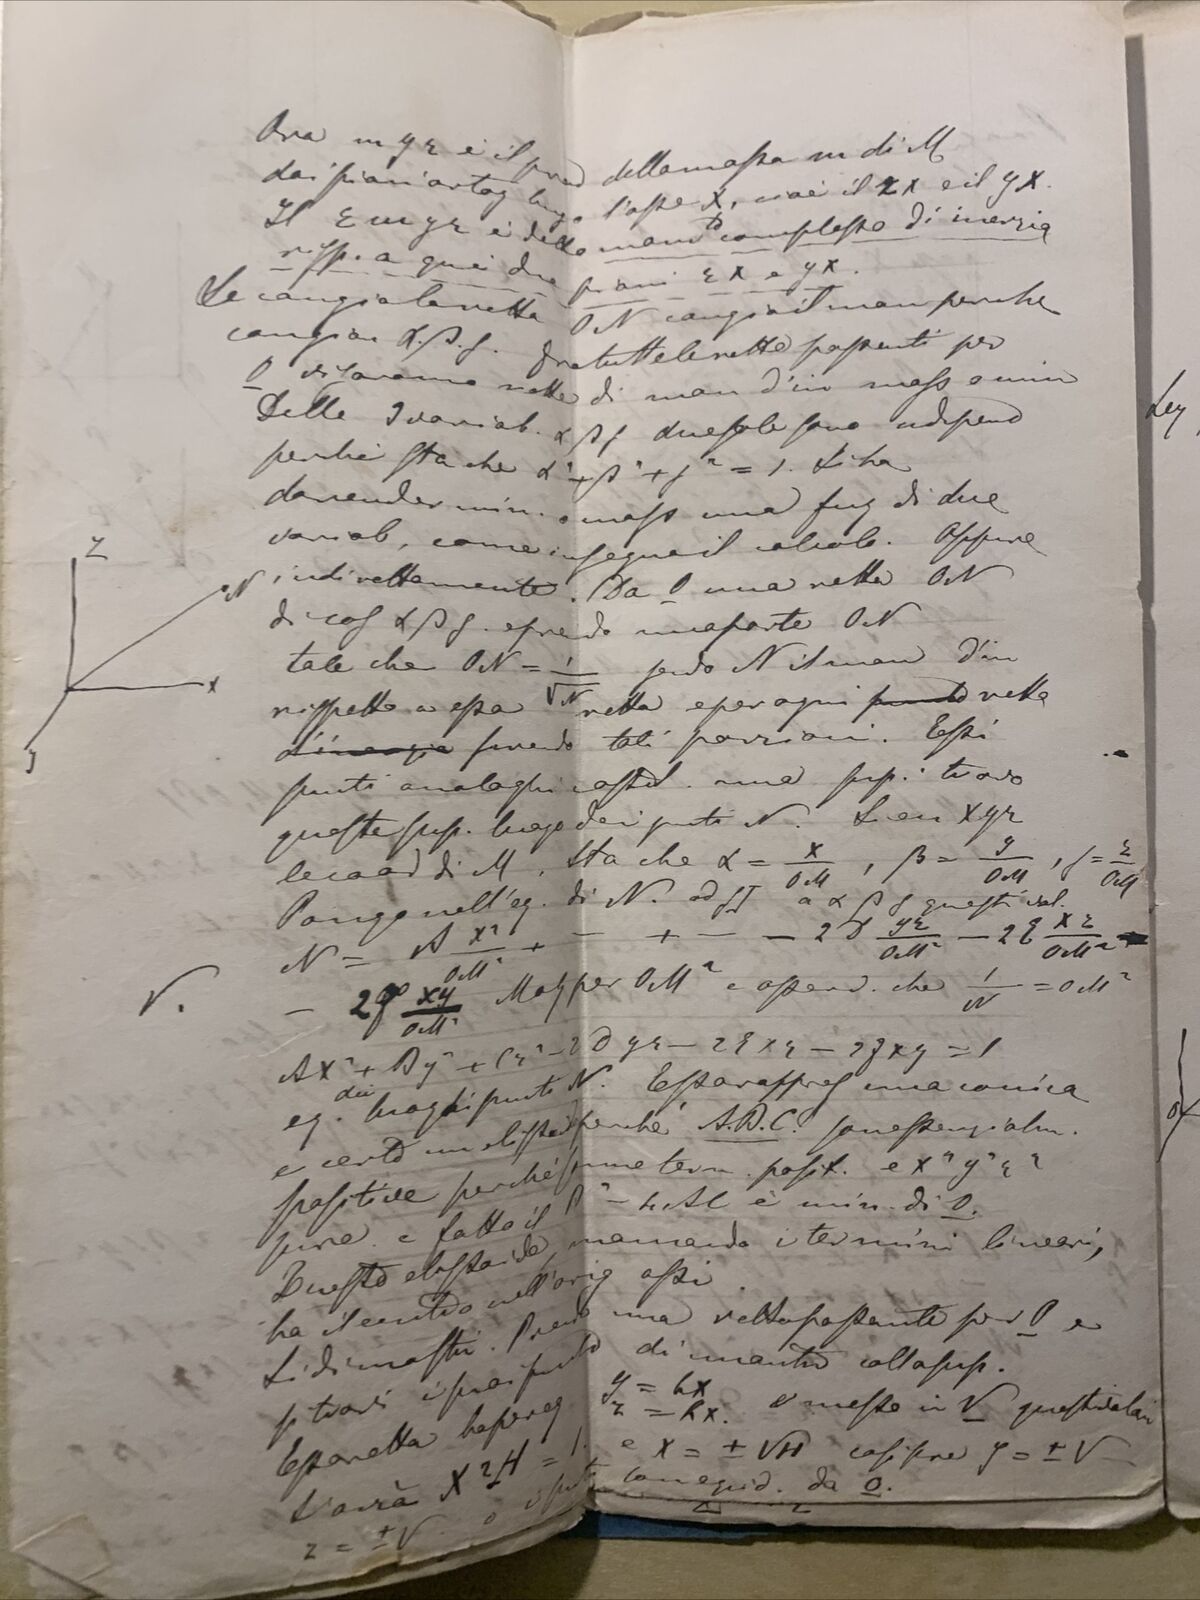 Ora m y z è il prod della massa m di M
dai piani ortog lungo l'asse X, cioè il zX e il yX.
Il Σ m y z è detto mom<sup>to</sup> complesso di inerzia
risp. a quei due piani zX e yX.
Se cangia la retta ON cangia il mom perché
cangian α.β.γ. Fra tutte le rette passanti per
O vi saranno rette di mom d'in mass o min
Delle 3 variab. α β γ due sole sono indipend
perché sta che α² + β² + γ² = 1. Si ha
da render min. o mass una fuz di due
variab, come insegna il calcolo. Oppure
indirettamente. Da O una retta ON
di cos α β γ. e prendo una parte ON
tale che ON = 1/√N sendo N il mom d'in
rispetto a essa retta e per ogni punto retta
d'inerzia prendo tali porzioni. Essi
punti analoghi costit. una sup. trovo
questa sup. luogo dei punti N. Sien x y z
le coord di M, sta che α = x/OM, β = y/OM, γ = z/OM
Pongo nell'eq. di N. ad α β γ questi val.
N = A x²/OM² + — + — − 2D yz/OM² − 2E xz/OM²
V.
− 2F xy/OM² Molt per OM² e osserv. che 1/N = OM²
Ax² + By² + Cz² − 2Dyz − 2Exz − 2Fxy = 1
eq. luoghi dei punti N. Essa rappres una conica
e certo un elissoide perché A.B.C. son essenzialm.
positive perché somme term. posit. e x² y² z²
pure e fatto il B² − 4AC è min. di O.
Questo elissoide, mancando i termini lineari,
ha il centro nell'orig assi.
Si dimostri. Prendo una retta passante per O e
si trovi i suoi punti di incontro colla sup.
Essa retta ha per eq. y = hx
z = kx. e messo in V questi valori
S'avrà X²H = 1. e x = ±√H così pure y = ±√—
z = ±√ o i punti son equid. da O.
z
N
x
y